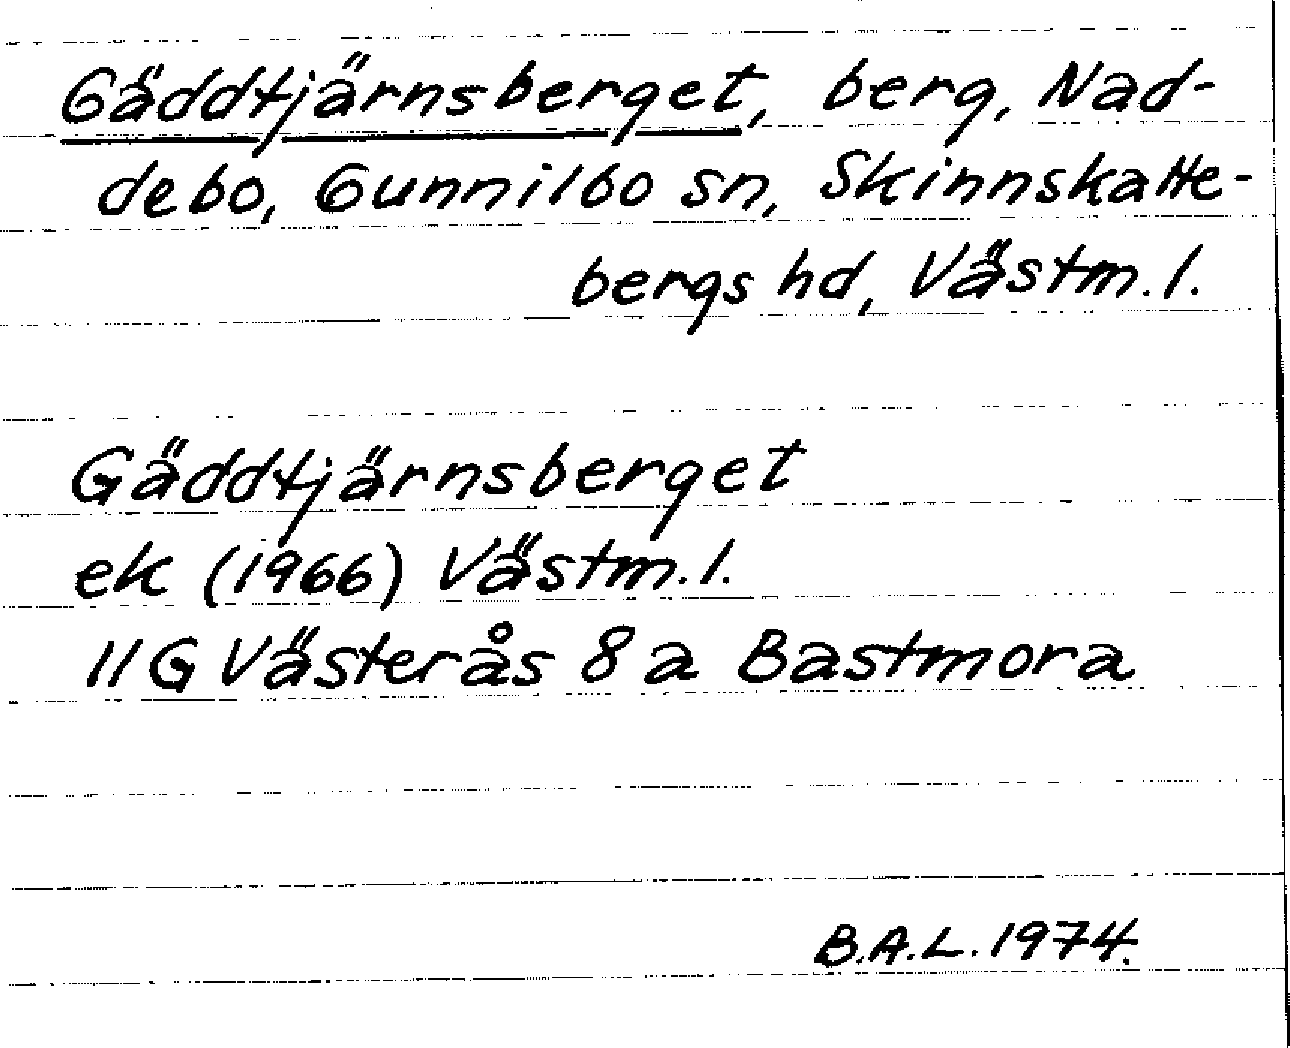 Gäddtjärnsberget, berg, Nad-
debo, Gunnilbo sn, Skinnskatte-
bergs hd, Västm. l.
Gäddtjärnsberget
ek (1966) Västm. l.
11G Västerås 8 a Bastmora
B.A.L. 1974.